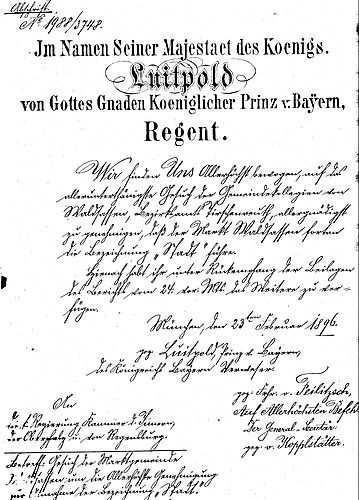 Abschrift.
No 1988/3748.
Im Namen Seiner Majestaet des Koenigs.
Luitpold
von Gottes Gnaden Koeniglicher Prinz v. Bayern,
Regent.
Wir finden Uns Allerhöchst bewogen, auf das
allerunterthänigste Gesuch der Gemeindekollegien von
Waldsassen, Bezirksamts Tirschenreuth, allergnädigst
zu genehmigen, daß der Markt Waldsassen fortan
die Bezeichnung „Stadt" führe.
Hienach habt ihr unter Rückempfang der Beilagen
des Berichts vom 24. vor. Mts. das Weitere zu ver-
fügen.
München, den 23ten Februar 1896.
gez. Luitpold, Prinz v. Bayern,
des Königreich Bayern Verweser.
gez. Frhr. v. Feilitzsch.
An
die k. Regierung, Kammer des Innern,
der Oberpfalz u. von Regensburg.
Auf Allerhöchsten Befehl
Der General-Sekretär
gez. v. Kopplstätter.
Betreff: Gesuch der Marktgemeinde
um die Allerhöchste Genehmigung
zur Annahme der Bezeichnung „Stadt".